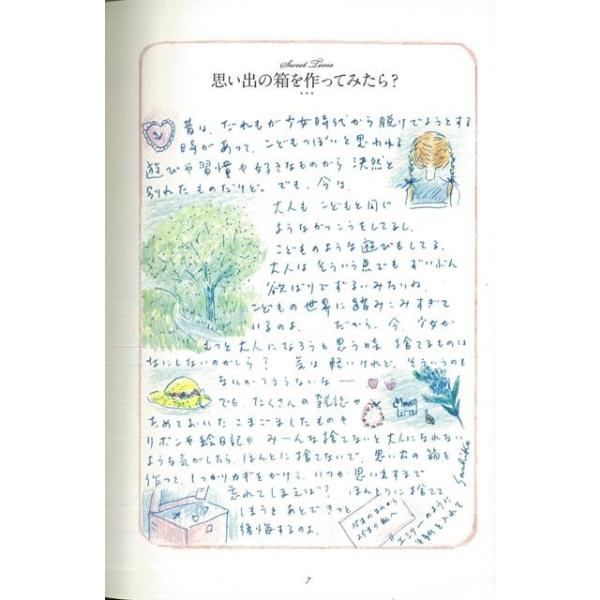 Sweet Time
思い出の箱を作ってみたら?
昔は、だれもが少女時代から脱けでようとする
時があって、こどもっぽいと思われる
遊びや習慣や好きなものから決然と
別れたものだけど。でも、今は、
大人もこどもと同じ
ようなかっこうをしてるし、
こどものような遊びもしてる。
大人はそういう点でもずいぶん
欲ばりでずるいみたいね。
こどもの世界に踏みこみすぎて
いるのよ。だから、今、少女が
もっと大人になろうと思う時、捨てるものは
なにもないのかしら? 気は軽いけれど、そういうのも
なんかつまらないな―
でも、たくさんの雑誌や
ためておいたこまごましたものや
リボンや絵日記や みーんな捨てないと大人になれない
ような気がしたら、ほんとに捨てないで、思い出の箱を
作って、しっかりカギをかけて、いつか思いますまで
忘れてしまえば? ほんとうに捨てて
しまうとあとできっと
後悔するのよ。
Sachiko
#エミリーのように
手紙を入れて
7